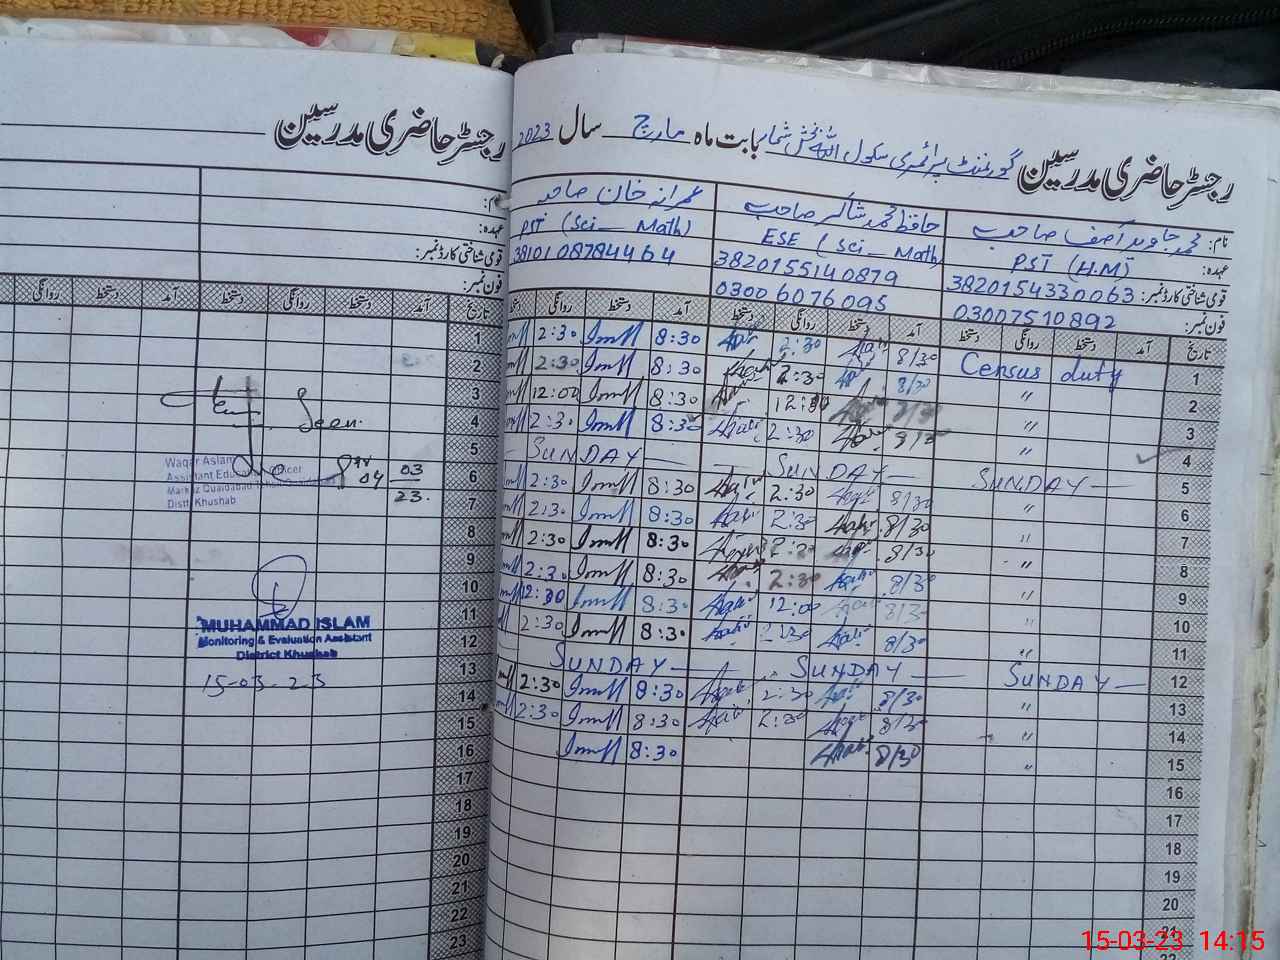 رجسٹر حاضری مدرسین گورنمنٹ پرائمری سکول اللہ بخش شمار بابت ماہ مارچ سال 2023
نام: محمد جاوید آصف صاحب
عہدہ: PST (H.M)
قومی شناختی کارڈ نمبر: 3820154330063
فون نمبر: 03007510892
حافظ محمد شاکر صاحب
ESE (Sci _ Math)
3820155140879
03006076095
عمرانہ خان صاحبہ
PST (Sci _ Math)
3810108784464
تاریخ آمد دستخط روانگی دستخط آمد دستخط روانگی دستخط آمد دستخط روانگی دستخط
1 Census duty 8/30 2:30 8:30 2:30
2 " 8/30 2:30 8:30 2:30
3 " 8/30 12:30 8:30 12:00
4 " 8/30 2:30 8:30 2:30
5 SUNDAY SUNDAY SUNDAY
6 " 8/30 2:30 8:30 2:30
7 " 8/30 2:30 8:30 2:30
8 " 8/30 2:30 8:30 2:30
9 " 8/30 2:30 8:30 2:30
10 " 8/30 12:00 8:30 12:30
11 " 8/30 2:30 8:30 2:30
12 SUNDAY SUNDAY SUNDAY
13 " 8/30 2:30 8:30 2:30
14 " 8/30 2:30 8:30 2:30
15 " 8/30 8:30
16
17
18
19
20
21
22
رجسٹر حاضری مدرسین
نام:
عہدہ:
قومی شناختی کارڈ نمبر:
فون نمبر:
تاریخ آمد دستخط روانگی دستخط آمد دستخط روانگی
1
2
3
4
5
6
7
8
9
10
11
12
13
14
15
16
17
18
19
20
21
22
23
Seen
Waqar Aslam
Assistant Education Officer
Markaz Quaidabad
Distt Khushab
04 03
23.
MUHAMMAD ISLAM
Monitoring & Evaluation Assistant
District Khushab
15-03-23
15-03-23 14:15